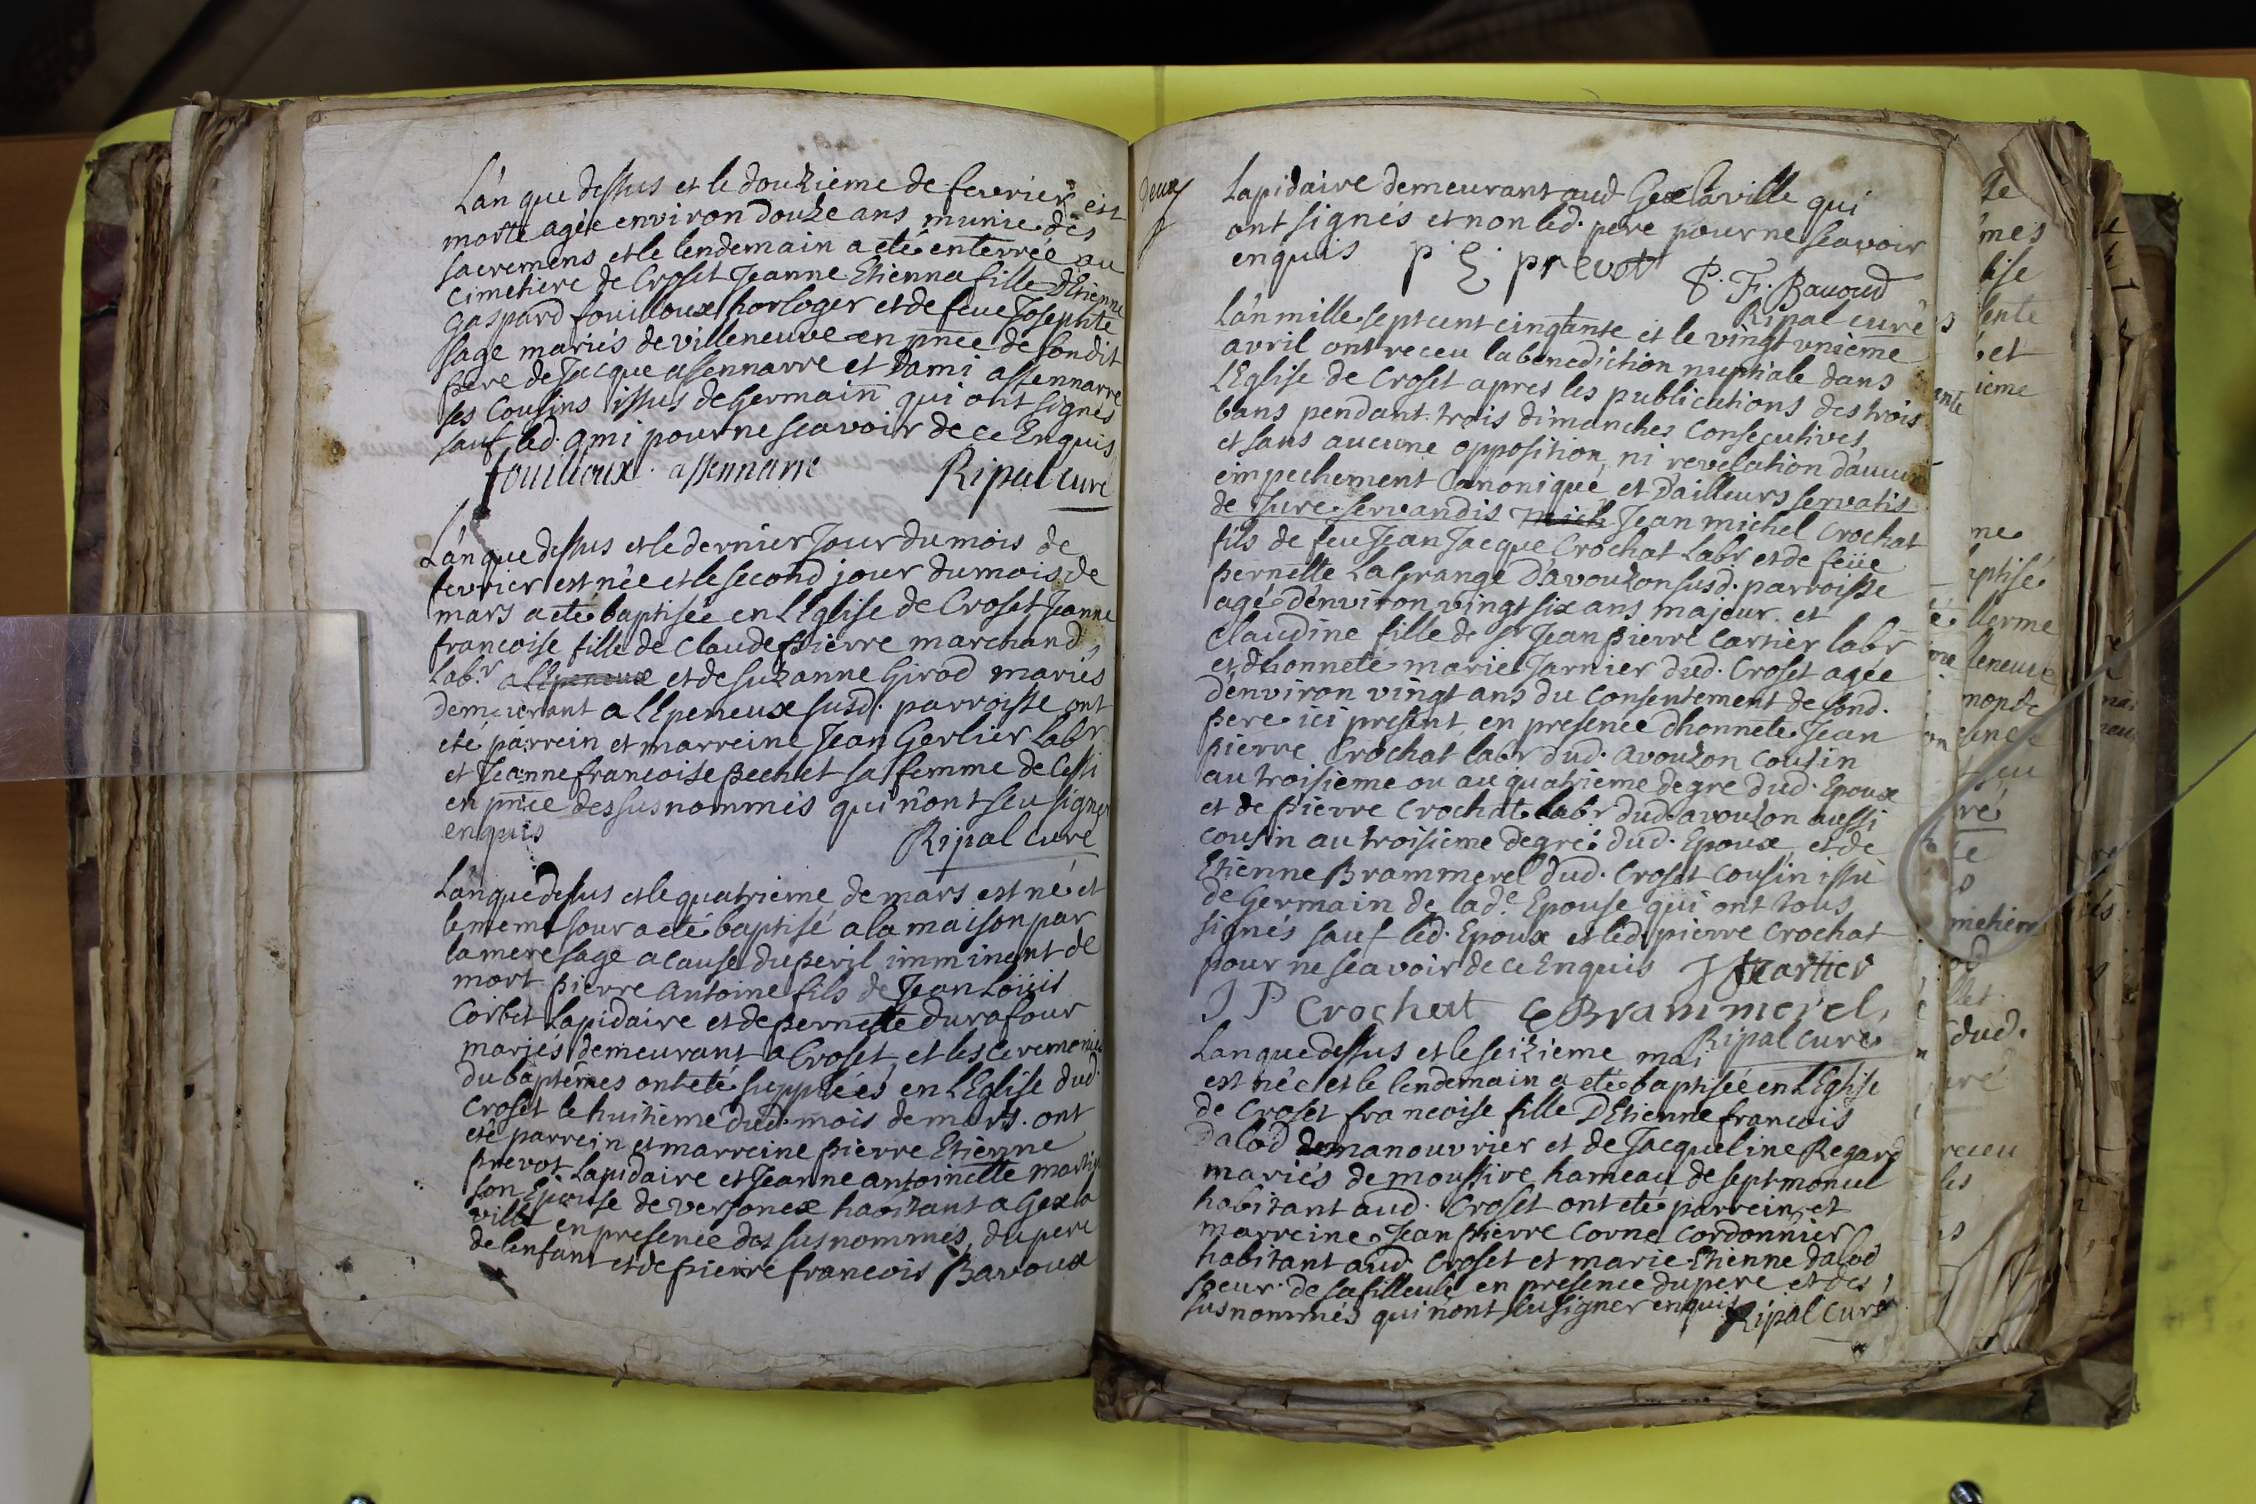 L'an que dessus et le douzieme de fevrier est
morte agée environ douze ans munie des
sacremens et le lendemain a eté enterrée au
cimetiere de Croset Jeanne Etienna fille D'Etienne
gaspard fouilloux horloger et de feue Josephte
sage mariés de villeneuve en pnce de sondit
pere de Jacque assennarre et Dami assennarre
ses Cousins issus de Germain qui ont signés
sauf led. ami pour ne scavoir de ce Enquis
fouilloux . assennarre Ripal curé
L'an que dessus et le dernier Jour du mois de
fevrier est née et le second jour du mois de
mars a eté baptisée en L'Eglise de Croset Jeanne
francoise fille de Claude Pierre marchand
lab.r a l'Epeneux et de suzanne Girod mariés
demeurant a L'Epeneux susd. parroisse ont
eté parrein et marreine Jean Gerlier labr
et Jeanne francoise Pechet sa femme de Cessi
en pnce des susnommés qui n'ont seu signer
enquis Ripal curé
L'an que dessus et le quatrieme de mars est né et
le meme Jour a eté baptisé a la maison par
la mere sage a cause du peril imminent de
mort pierre Antoine fils de Jean Loüis
Corbet Lapidaire et de pernette durafour
mariés demeurant a Croset, et les ceremonies
du baptêmes ont eté supplées en L'Eglise dud.
Croset le huitieme dud. mois de mars. ont
eté parrein et marreine pierre Etienne
prevot Lapidaire et Jeanne antoinette martin
son Epouse de versonex habitant a Gex la
ville en presence des susnommés, du pere
de l'enfant et de pierre francois Bavoux
deux
Lapidaire demeurant aud Gex la ville qui
ont signés et non led. pere pour ne scavoir
enquis P. E. prevot P. F. Bavoud
Ripal curé
L'an mille sept cent cinqtante et le vingt unieme
avril ont receu la benediction nuptiale dans
L'Eglise de Croset apres les publications des trois
bans pendant trois dimanches consecutives,
et sans aucune opposition, ni revelation d'aucun
empechement Canonique, et d'ailleurs servatis
de jure servandis mich Jean michel Crochat
fils de feu Jean Jacque Crochat labr et de feüe
pernette La Grange D'avouzon susd. parroisse
agé d'environ vingt six ans majeur. et
Claudine fille de sr Jean Pierre Cartier labr
et d'honneté marie Jarnier dud. Croset agée
d'environ vingt ans du Consentement de sond.
pere ici present, en presence d'honnete Jean
pierre Crochat labr dud. avouzon cousin
au troisieme ou au quatrieme degre dud. Epoux
et de pierre Crochat labr dud. avouzon aussi
cousin au troisieme degré dud. Epoux, et de
Etienne Brammerel dud. Croset cousin issu
de Germain de lad.e Epouse qui ont tous
signés sauf led. Epoux et led. pierre Crochat
pour ne scavoir de ce Enquis J P Cartier
J P Crochat E Brammerel,
Ripal curé
L'an que dessus et le seizieme mai
est née et le lendemain a eté baptisée en L'Eglise
de Croset francoise fille D'Etienne francois
Dalod manouvrier et de Jacqueline Regard
mariés de moussire hameau de septmoncel
habitant aud. Croset ont eté parrein, et
marreine Jean pierre Corne Cordonnier
habitant aud. Croset et marie Etienne Dalod
soeur de sa filleule en presence du pere et des
susnommés qui n'ont seu signer enquis
Ripal Curé